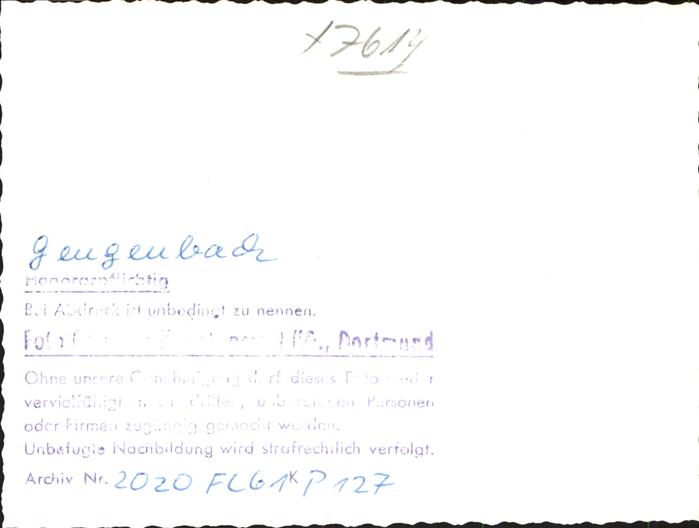 17614
Gengenbach
Honorarpflichtig
Bei Abdruck ist unbedingt zu nennen.
Foto Dortmund
Ohne unsere Genehmigung darf dieses Foto weder
vervielfältigt noch dritten, unberufenen Personen
oder Firmen zugängig gemacht werden.
Unbefugte Nachbildung wird strafrechtlich verfolgt.
Archiv Nr. 2020 FL61K P 127